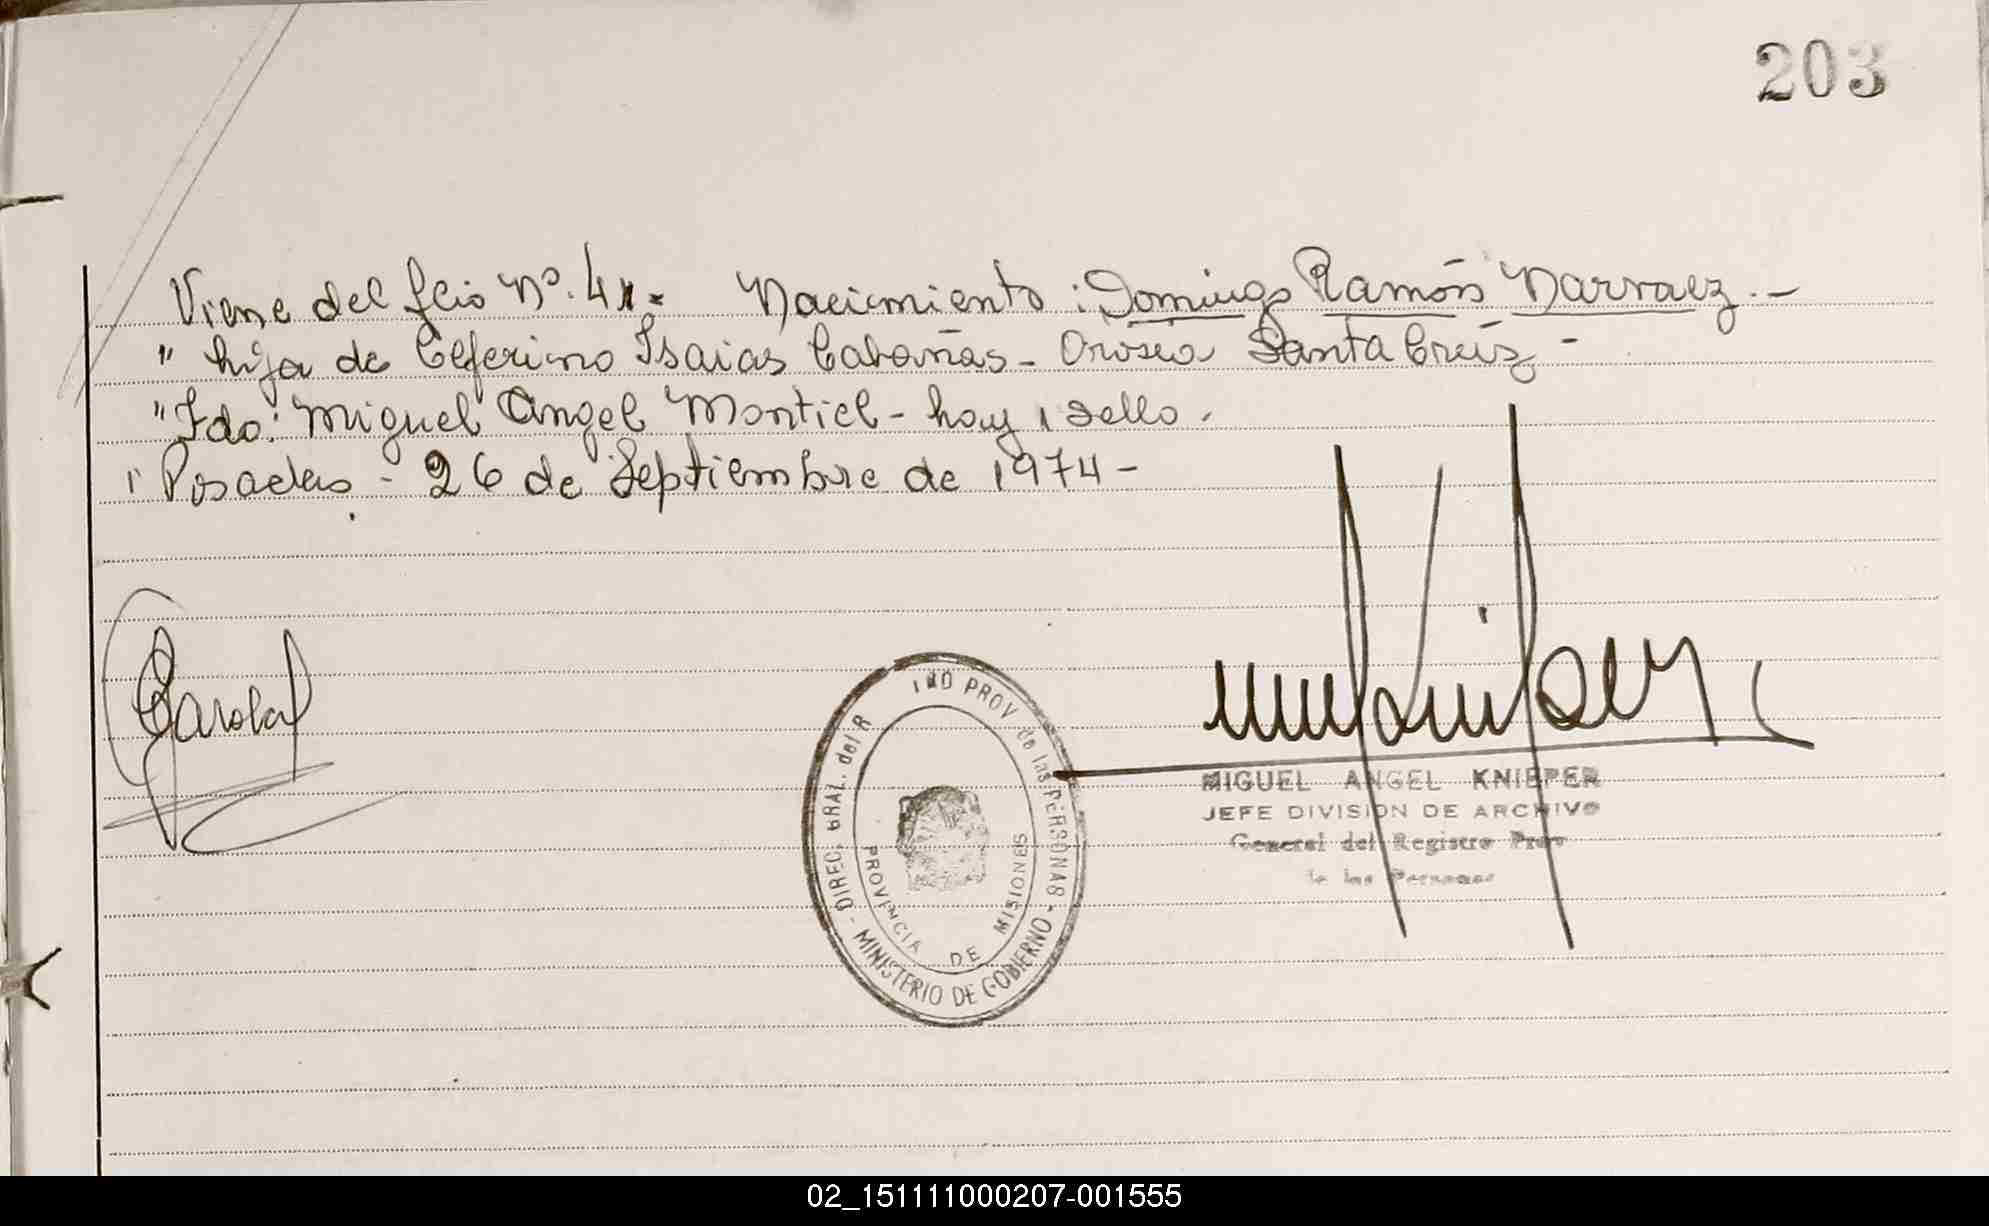 203
Viene del flio Nº. 41. Nacimiento: Domingo Ramón Narvaez.-
" hija de Ceferino Isaias Cabañas - Orosia Santa Cruz -
" Fdo: Miguel Angel Montiel - hay 1 sello.
" Posadas - 26 de Septiembre de 1974 -
DIREC. GRAL. del R PROV de las PERSONAS - MINISTERIO DE GOBIERNO -
PROVINCIA DE MISIONES
MIGUEL ANGEL KNIEPER
JEFE DIVISION DE ARCHIVO
General del Registro Prov
de las Personas
02_151111000207-001555